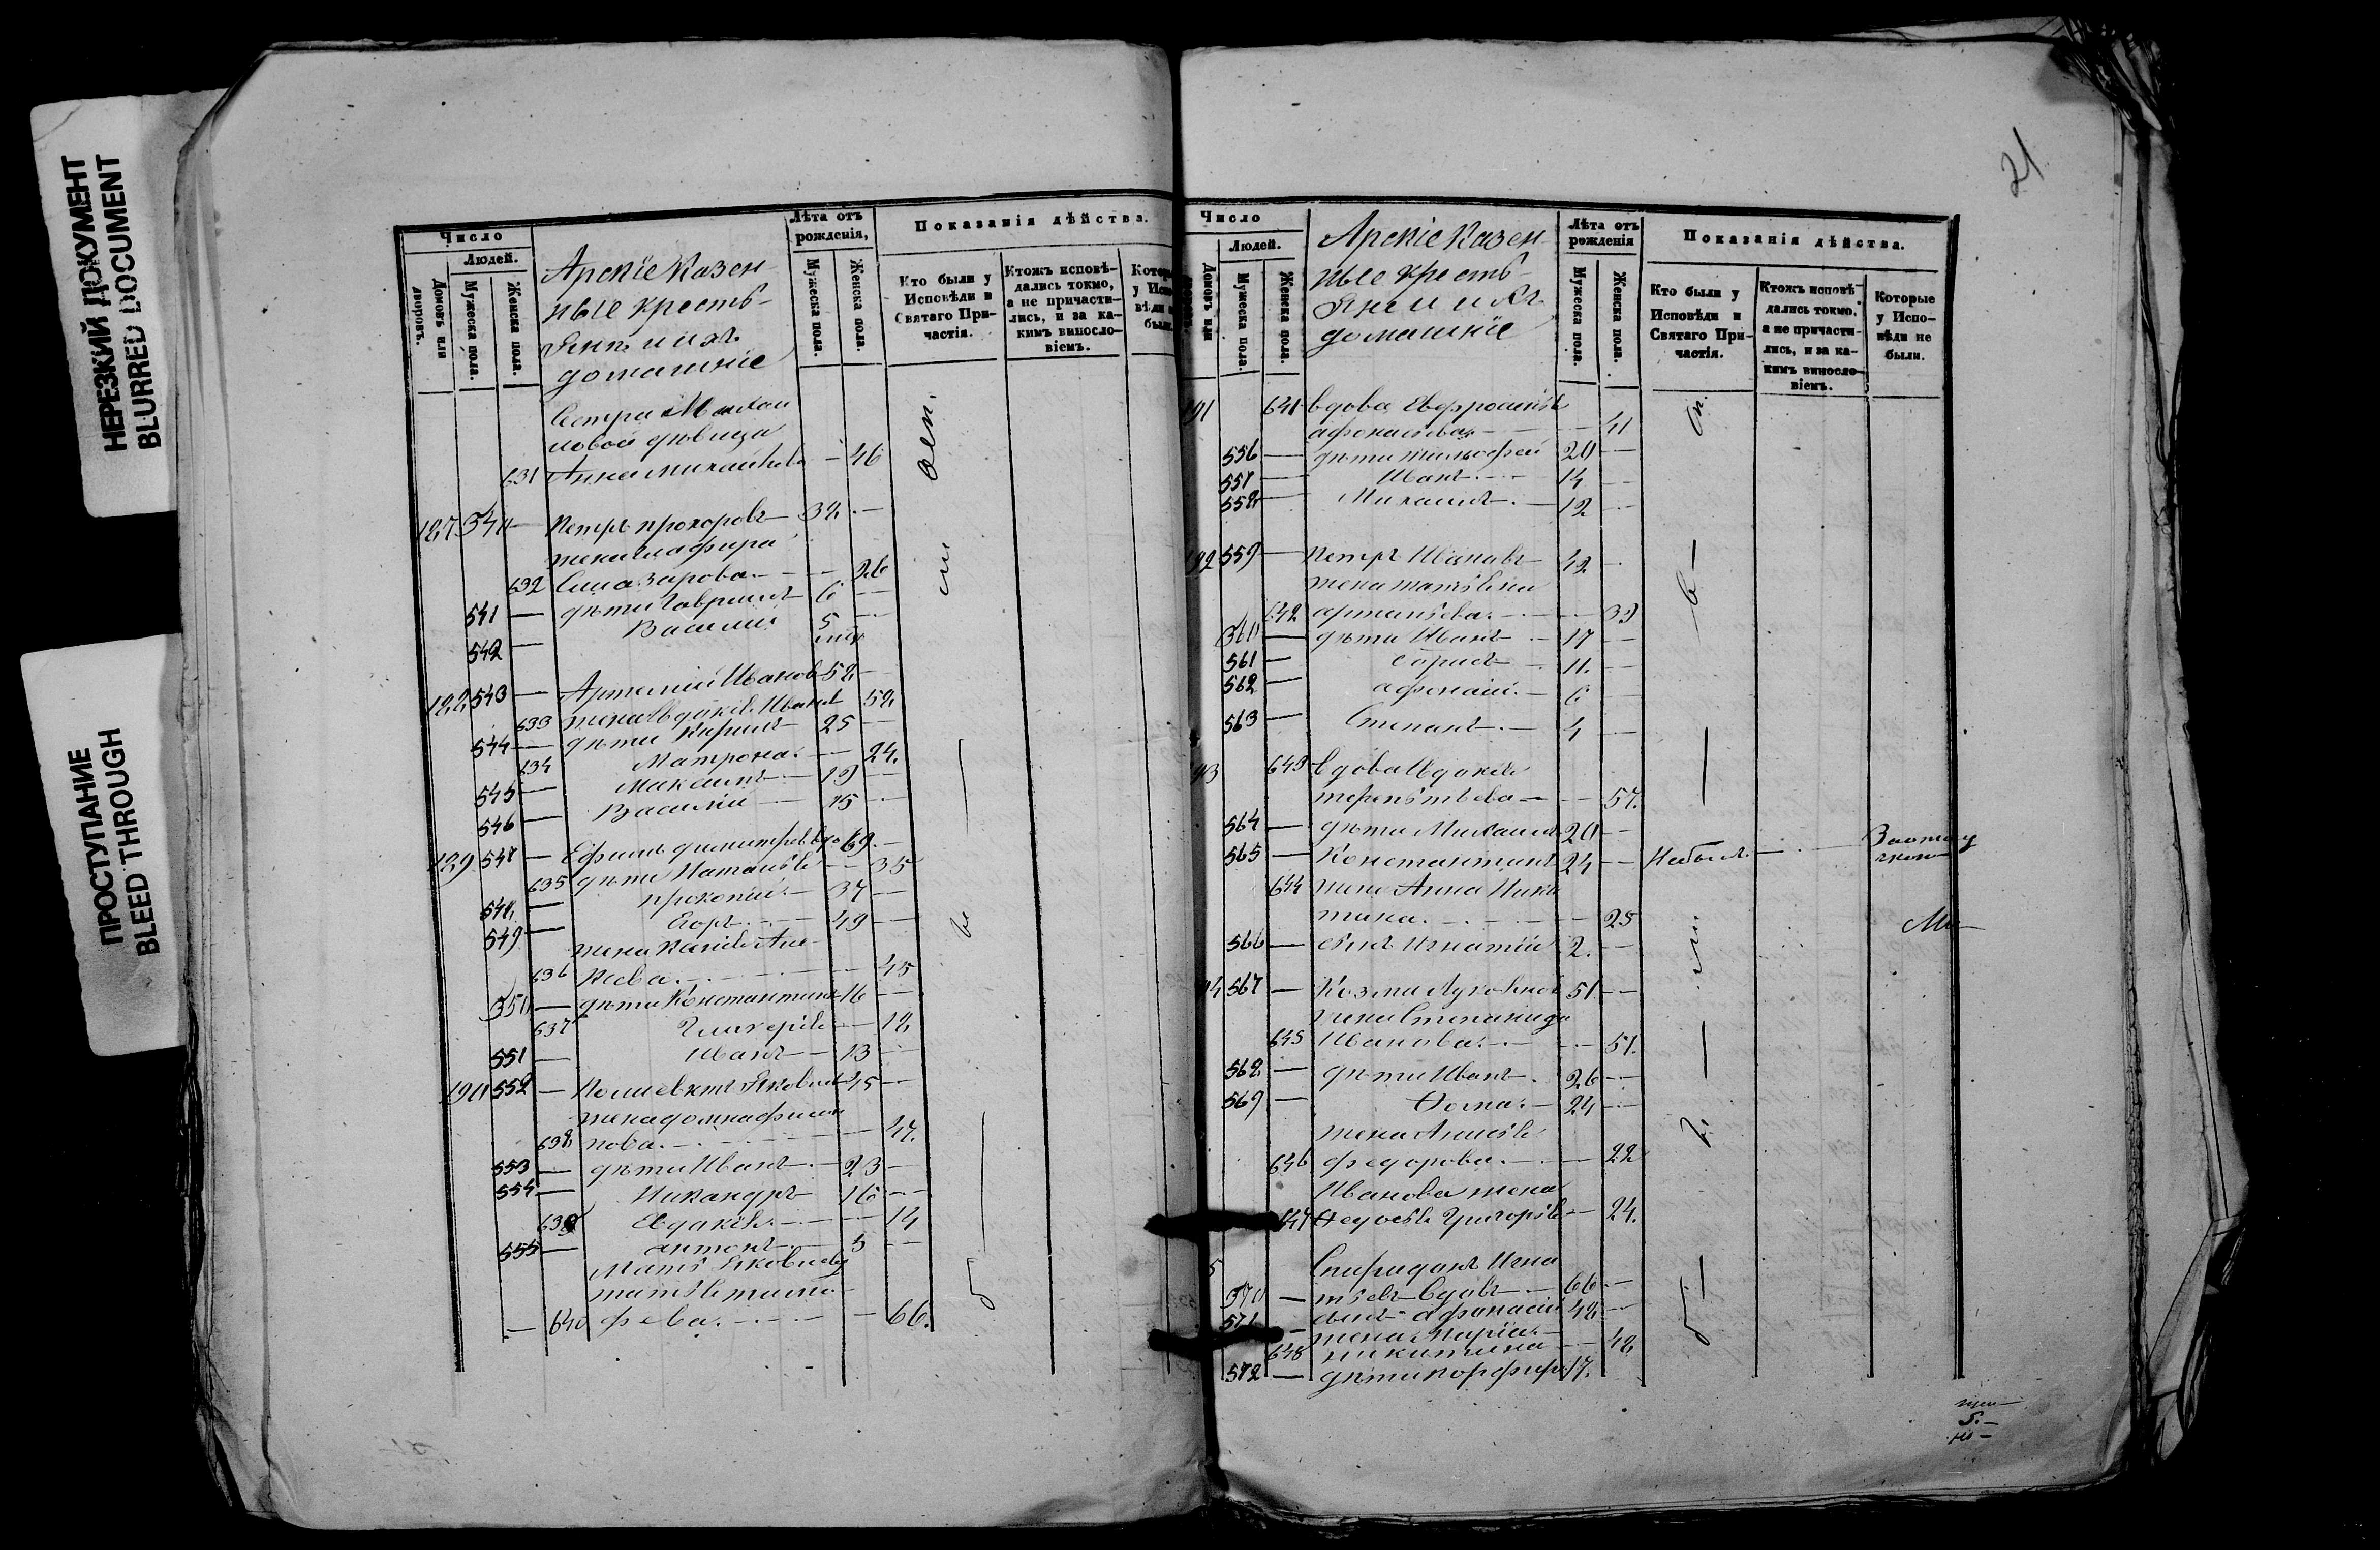 НЕРЕЗКИЙ ДОКУМЕНТ
BLURRED DOCUMENT
ПРОСТУПАНИЕ
BLEED THROUGH
Число
Людей.
Домовъ или дворовъ.
Мужеска пола.
Женска пола.
Арскіе Казен-
ные кресть-
яне и ихъ
домашніе
Лѣта отъ рожденія,
Мужеска пола.
Женска пола.
Показанія дѣйства.
Кто были у Исповѣди и Святаго Причастія.
Ктожъ исповѣ-дались токмо, а не причасти-лись, и за ка-кимъ винословіемъ.
Сестра Михаи
ловой дѣвица
631 Анна Михайлова — 46
127 540 — Петръ Прохоровъ 32 —
жена Глафира
632 — 26
541 — дѣти Гавріилъ 6 —
542 — Василій 5
128 543 — Артемій Ивановъ 52 —
633 жена Евдокія Иванов 52
544 — дѣти Кирилъ 25 —
634 Матрона — 24.
545 — Максимъ 19 —
546 — Василій 15 —
129 547 — Ефимъ Димитріев вдо 69 —
635 дѣти Наталія — 35
548 — Прокопій 37 —
549 — Егоръ 49 —
636 — 45
550 — дѣти Константинъ 16 —
637 Гликерія — 18
551 — Иванъ 13 —
190 552 — Яковлев 45 —
жена Домна Филип
638 пова — 47.
553 — дѣти Иванъ 23 —
554 — Никандръ 16 —
639 Евдокія — 14
555 — Антонъ 5 —
Мать Яковлева
— 640 — 66.
21
Число
Людей.
Домовъ или
Мужеска пола.
Женска пола.
Арскіе Казен-
ные кресть-
яне и ихъ
домашніе
Лѣта отъ рожденія
Мужеска пола.
Женска пола.
Показанія дѣйства.
Кто были у Исповѣди и Святаго При-частія.
Ктожъ исповѣ-дались токмо, а не причасти-лись, и за ка-кимъ винословіемъ.
Которые у Испо-вѣди не были.
641 вдова Евфросинія
Афонасьева — 41
556 — дѣти Тимофей 20 —
557 — Иванъ 14 —
558 — Михаилъ 12 —
192 559 — Петръ Ивановъ 42 —
жена Татьяна
642 — 39
560 — дѣти Иванъ 17 —
561 — 11. —
562 — Афонасій 6 —
563 — Степанъ 4 —
643 вдова Евдокія
Терентьева — 57.
564 — дѣти Михаилъ 20 —
565 — Константинъ 24 — Не былъ
644 жена Анна Ники
тина — 25
566 — сынъ Игнатій 2. —
567 — Козма 51 —
жена Степанида
645 Иванова — 51.
568 — дѣти Иванъ 26 —
569 — Ѳома 24 —
жена
646 Федорова — 22
Иванова жена
647 Ѳедосія Григорьев — 24.
Спиридонъ Игна
570 — тьевъ вдовъ 66 —
571 — сынъ Афонасій 48 —
жена Марія
648 Никитина — 48
572 — дѣти Порфирій 17.